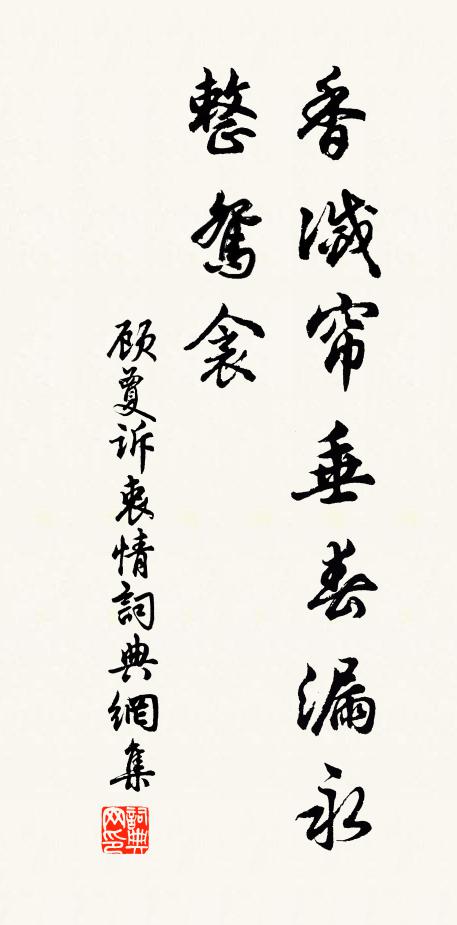 香滅帘垂春漏永
整鴛衾
顾敻诉衷情詞典網集
詞典网印